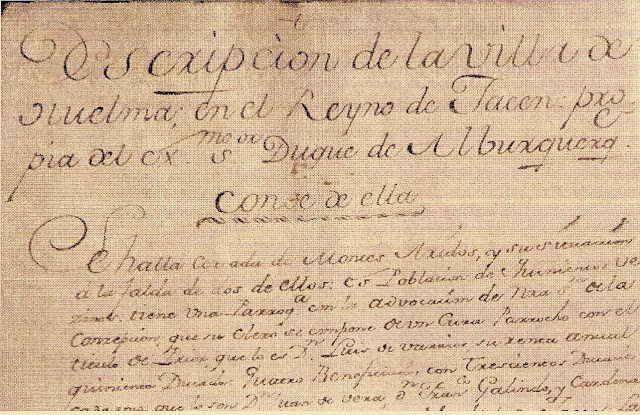 Descripcion de la Villa de
Huelma; en el Reyno de Jaen: pro
pia del exmo Sor Duque de Alburquerq.e
Conde de ella
Se halla cercada de Montes Aridos, y su situacion
â la falda de dos de ellos: es Poblacion de Quinientos ve
zinos: tiene una Parroqa con la advocacion de Nra Sra de la
Concepcion, que su Clero se compone de un Cura Parrocho con el
titulo de Prior que lo es Dn Luis de su renta anual
quinientos Ducados: Quatro Beneficios, con Trescientos Ducados
cada uno, que lo son Dn Juan de Vera Dn Franco Galindo, y Cardona